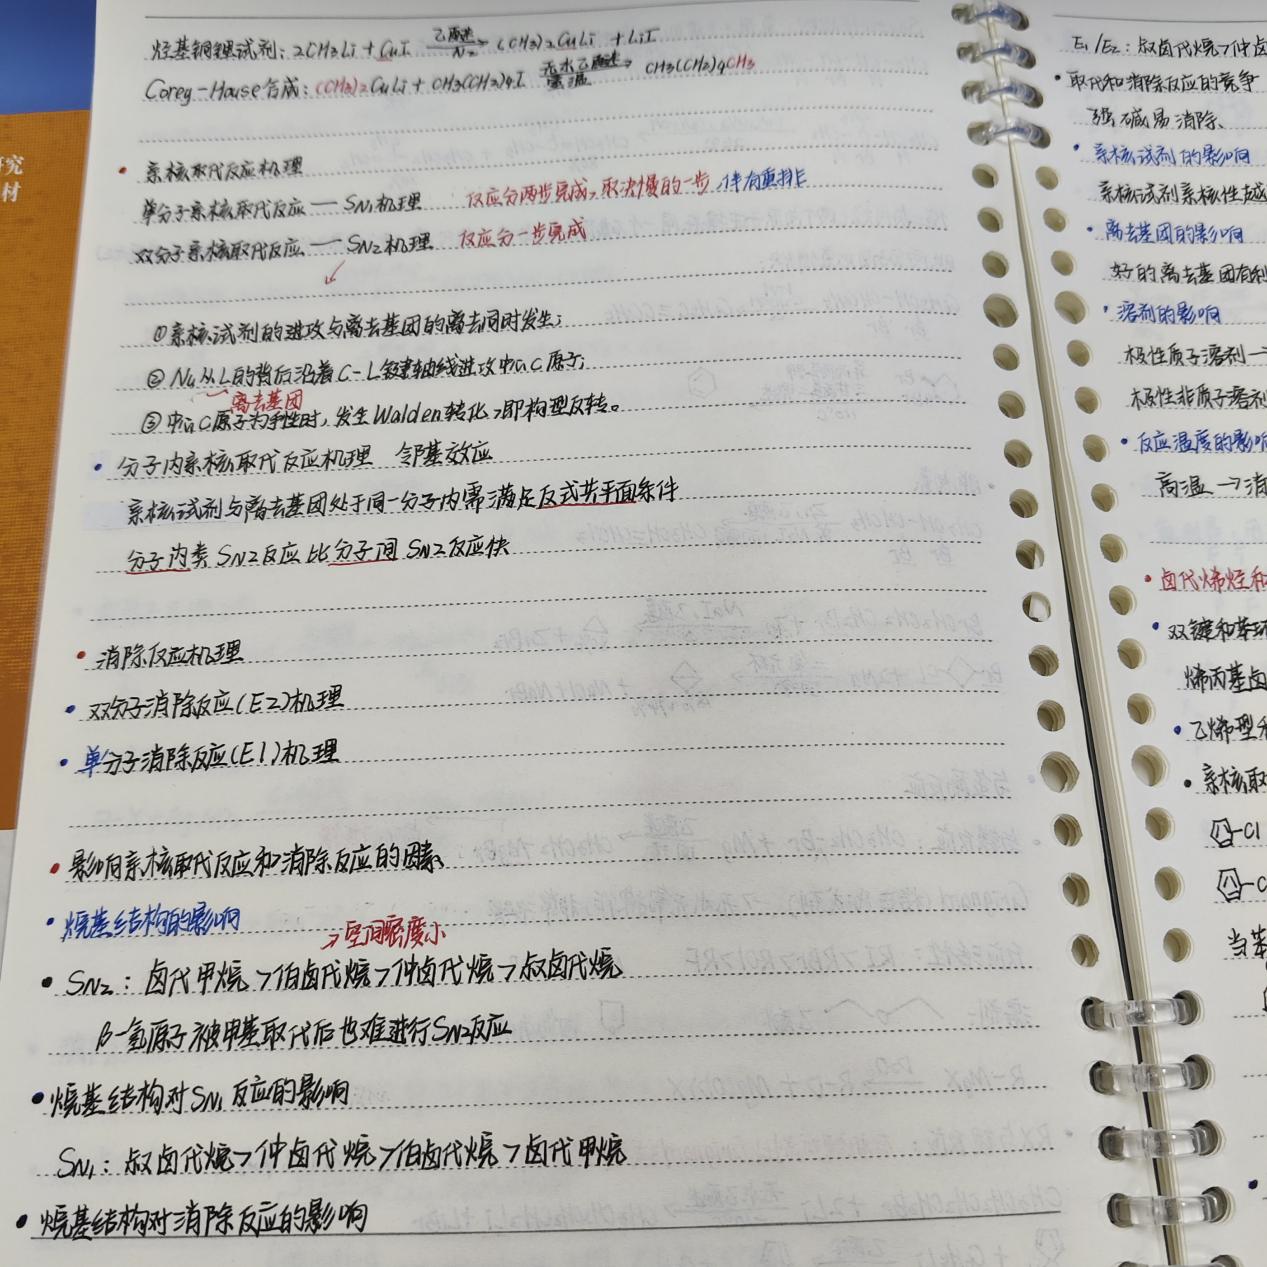 烃基铜锂试剂：2CH3Li + CuI 乙醚 N2 (CH3)2CuLi + LiI
Corey-House合成：(CH3)2CuLi + CH3(CH2)4I 无水乙醚 室温 CH3(CH2)4CH3
• 亲核取代反应机理
单分子亲核取代反应 — SN1机理 反应分两步完成，取决慢的一步，伴有重排
双分子亲核取代反应 — SN2机理 反应分一步完成
①亲核试剂的进攻与离去基团的离去同时发生；
② Nu从L的背后沿着C-L键轴线进攻中心C原子；
离去基团
③中心C原子为手性时，发生Walden转化，即构型反转。
• 分子内亲核取代反应机理 邻基效应
亲核试剂与离去基团处于同一分子内需满足反式共平面条件
分子内类SN2反应比分子间SN2反应快
• 消除反应机理
• 双分子消除反应(E2)机理
• 单分子消除反应(E1)机理
• 影响亲核取代反应和消除反应的因素
• 烃基结构的影响
→空间密度小
• SN2：卤代甲烷>伯卤代烷>仲卤代烷>叔卤代烷
β-氢原子被甲基取代后也难进行SN2反应
• 烃基结构对SN1反应的影响
SN1：叔卤代烷>仲卤代烷>伯卤代烷>卤代甲烷
• 烃基结构对消除反应的影响
E1/E2：叔卤代烷>仲卤
• 取代和消除反应的竞争
强碱易消除、
• 亲核试剂的影响
亲核试剂亲核性越
• 离去基团的影响
好的离去基团有利
• 溶剂的影响
极性质子溶剂→
极性非质子溶剂
• 反应温度的影响
高温→消
• 卤代烯烃和
• 双键和苯环
烯丙基卤
• 乙烯型和
• 亲核取
-Cl
-C
当苯
究
材